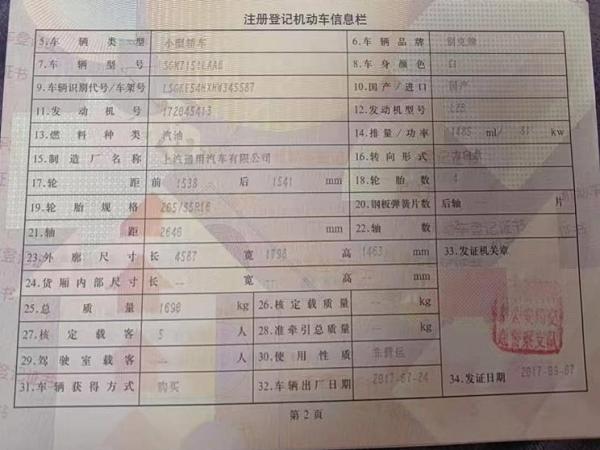 注册登记机动车信息栏
5.车辆类型 小型轿车 6.车辆品牌 别克牌
7.车辆型号 8.车身颜色 白
9.车辆识别代号/车架号 10.国产/进口 国产
11.发动机号 172845413 12.发动机型号
13.燃料种类 汽油 14.排量/功率 1485 ml/ kw
15.制造厂名称 上汽通用汽车有限公司 16.转向形式 方向盘
17.轮距 前 1538 后 1541 mm 18.轮胎数 4
19.轮胎规格 20.钢板弹簧片数 后轴 片
21.轴距 2640 mm 22.轴数
23.外廓尺寸 长 4587 宽 1798 高 1463 mm 33.发证机关章
24.货厢内部尺寸 长 -- 宽 -- 高 -- mm
25.总质量 1690 kg 26.核定载质量 -- kg
27.核定载客 5 人 28.准牵引总质量 -- kg
29.驾驶室载客 -- 人 30.使用性质 非营运
31.车辆获得方式 购买 32.车辆出厂日期 2017-07-24 34.发证日期 2017-09-07
第2页